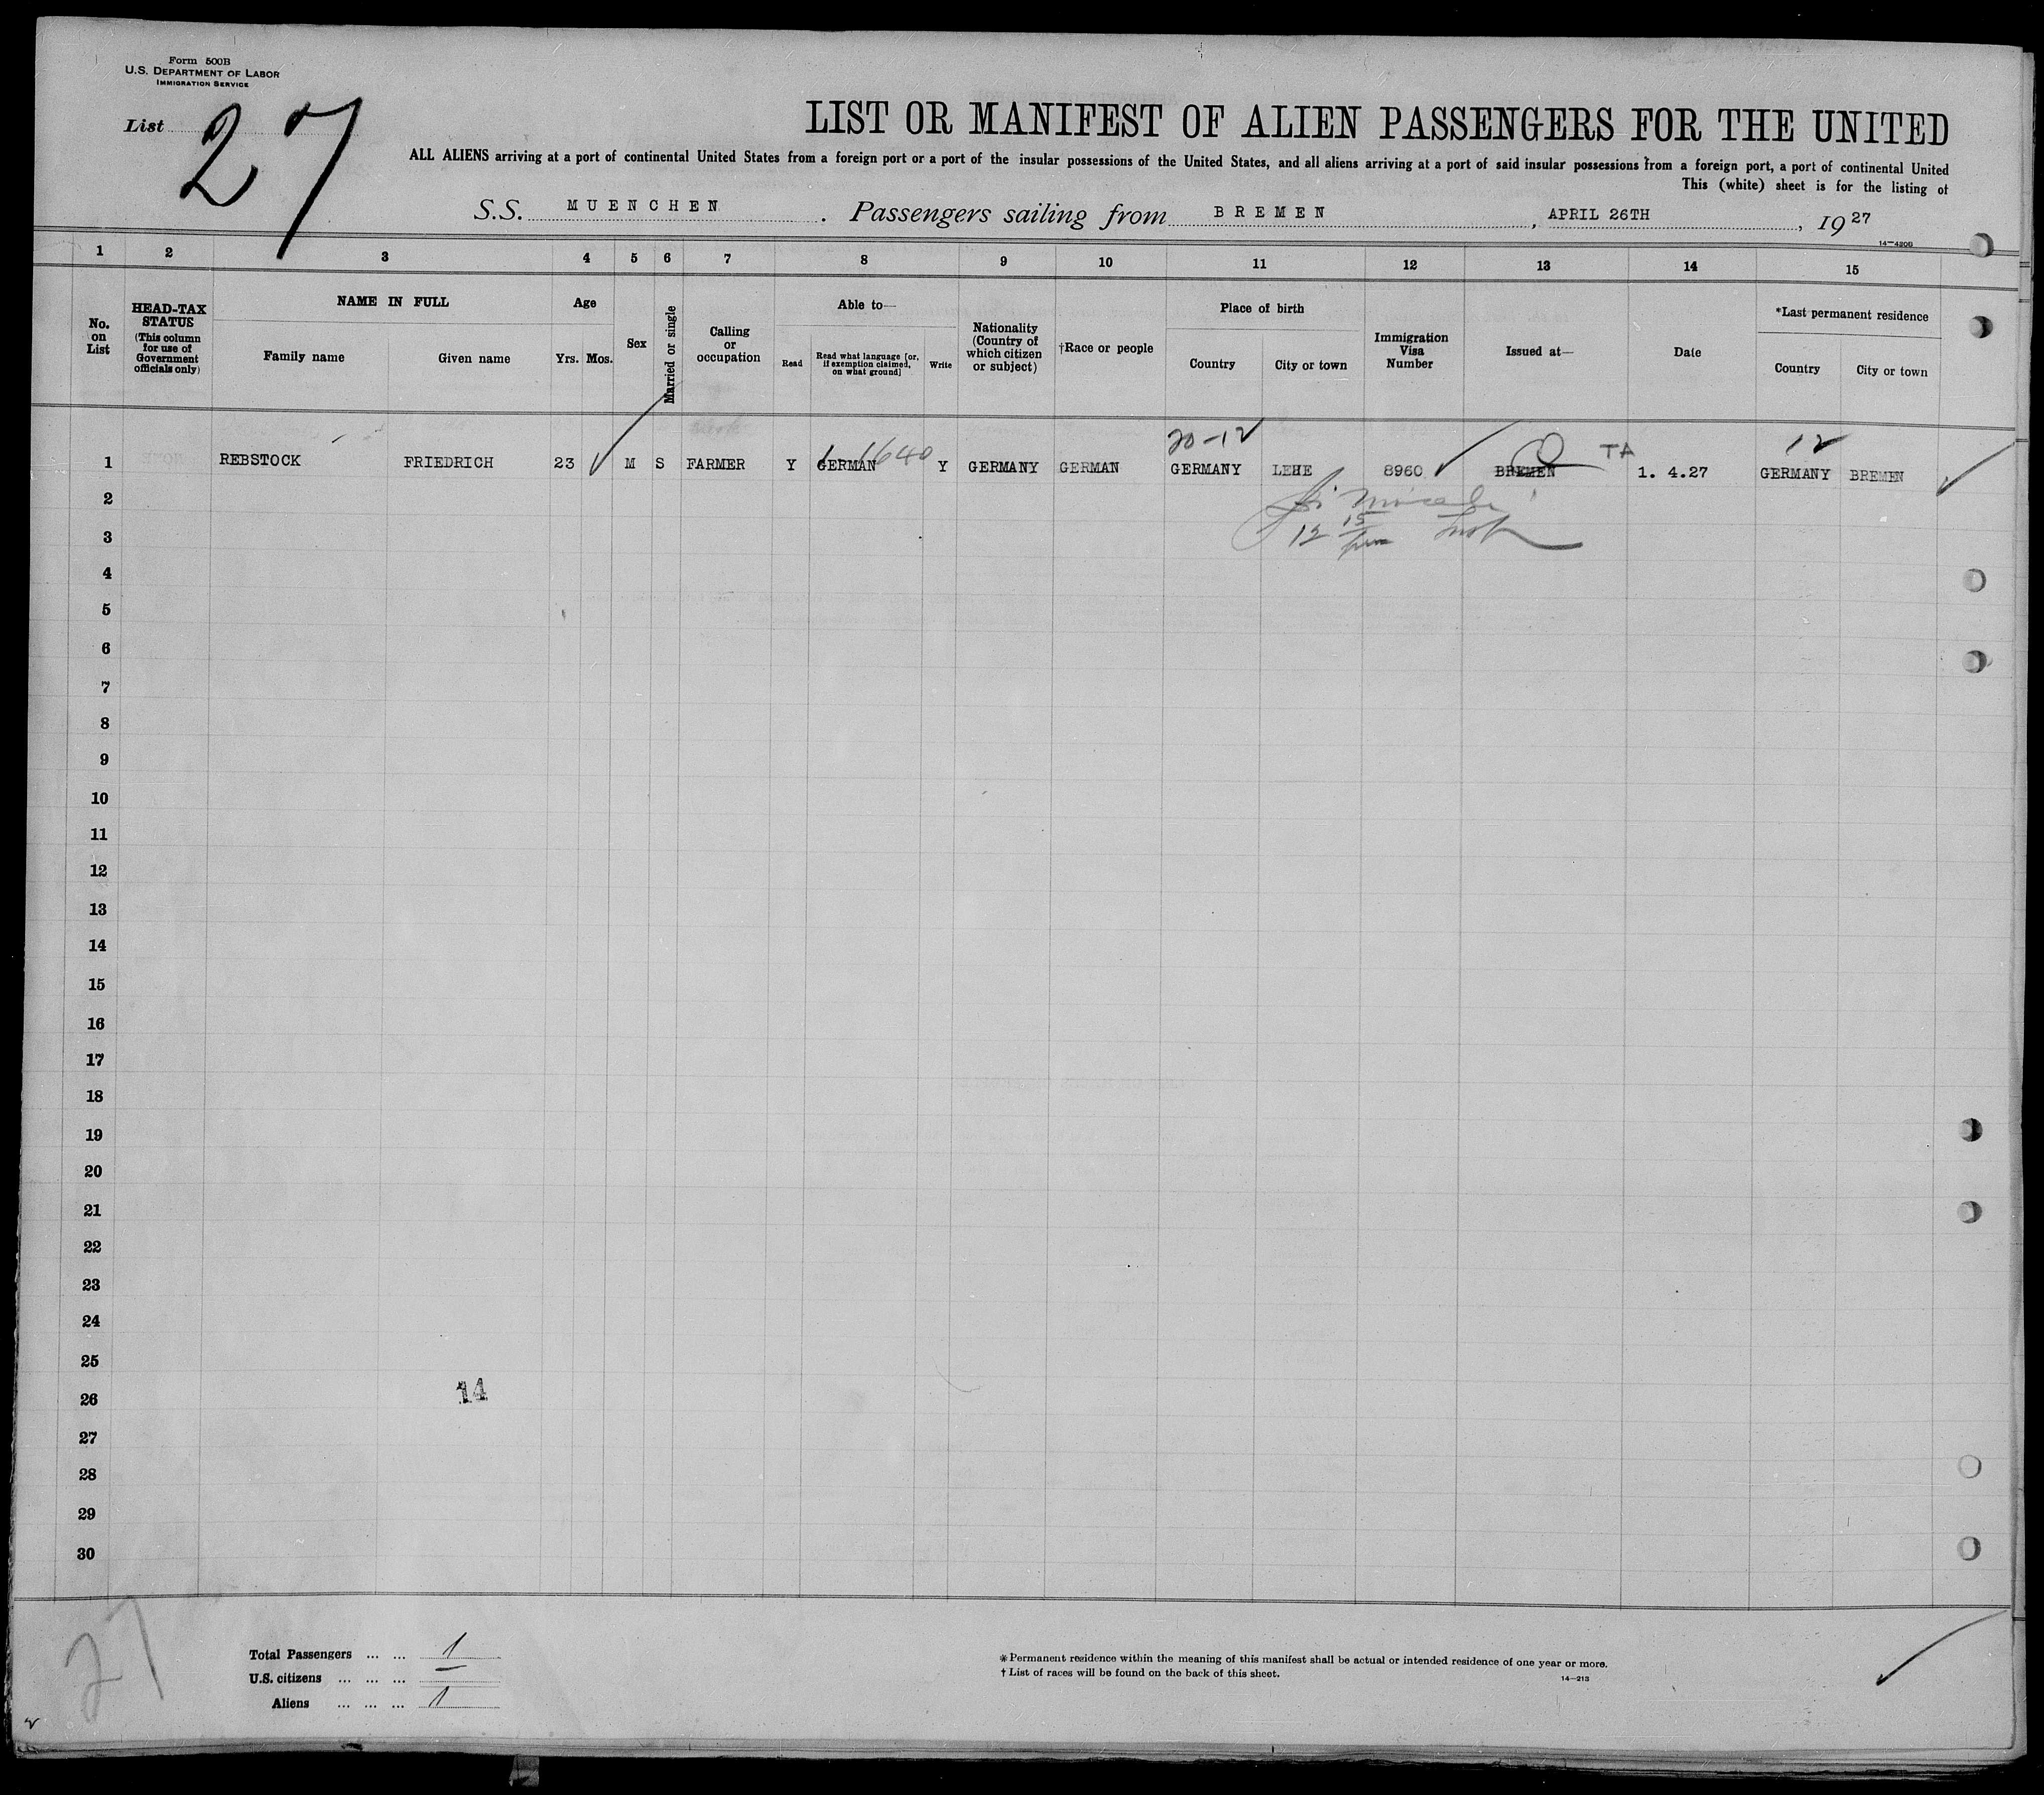 Form 500B
U.S. DEPARTMENT OF LABOR
IMMIGRATION SERVICE
List 27
LIST OR MANIFEST OF ALIEN PASSENGERS FOR THE UNITED
ALL ALIENS arriving at a port of continental United States from a foreign port or a port of the insular possessions of the United States, and all aliens arriving at a port of said insular possessions from a foreign port, a port of continental United
This (white) sheet is for the listing of
S.S. MUENCHEN. Passengers sailing from BREMEN, APRIL 26TH, 1927
14—4200
1 2 3 4 5 6 7 8 9 10 11 12 13 14 15
No. on List
HEAD-TAX STATUS (This column for use of Government officials only)
NAME IN FULL
Family name
Given name
Age
Yrs. Mos.
Sex
Married or single
Calling or occupation
Able to—
Read
Read what language [or, if exemption claimed, on what ground]
Write
Nationality (Country of which citizen or subject)
†Race or people
Place of birth
Country
City or town
Immigration Visa Number
Issued at—
Date
*Last permanent residence
Country
City or town
20-12 12
1640 TA
1 REBSTOCK FRIEDRICH 23 M S FARMER Y GERMAN Y GERMANY GERMAN GERMANY LEHE 8960 BREMEN 1. 4.27 GERMANY BREMEN
2
12 15
3
4
5
6
7
8
9
10
11
12
13
14
15
16
17
18
19
20
21
22
23
24
25
14
26
27
28
29
30
27
Total Passengers ... ... 1
U.S. citizens ... ... ... —
Aliens ... ... ... 1
* Permanent residence within the meaning of this manifest shall be actual or intended residence of one year or more.
† List of races will be found on the back of this sheet.
14—213